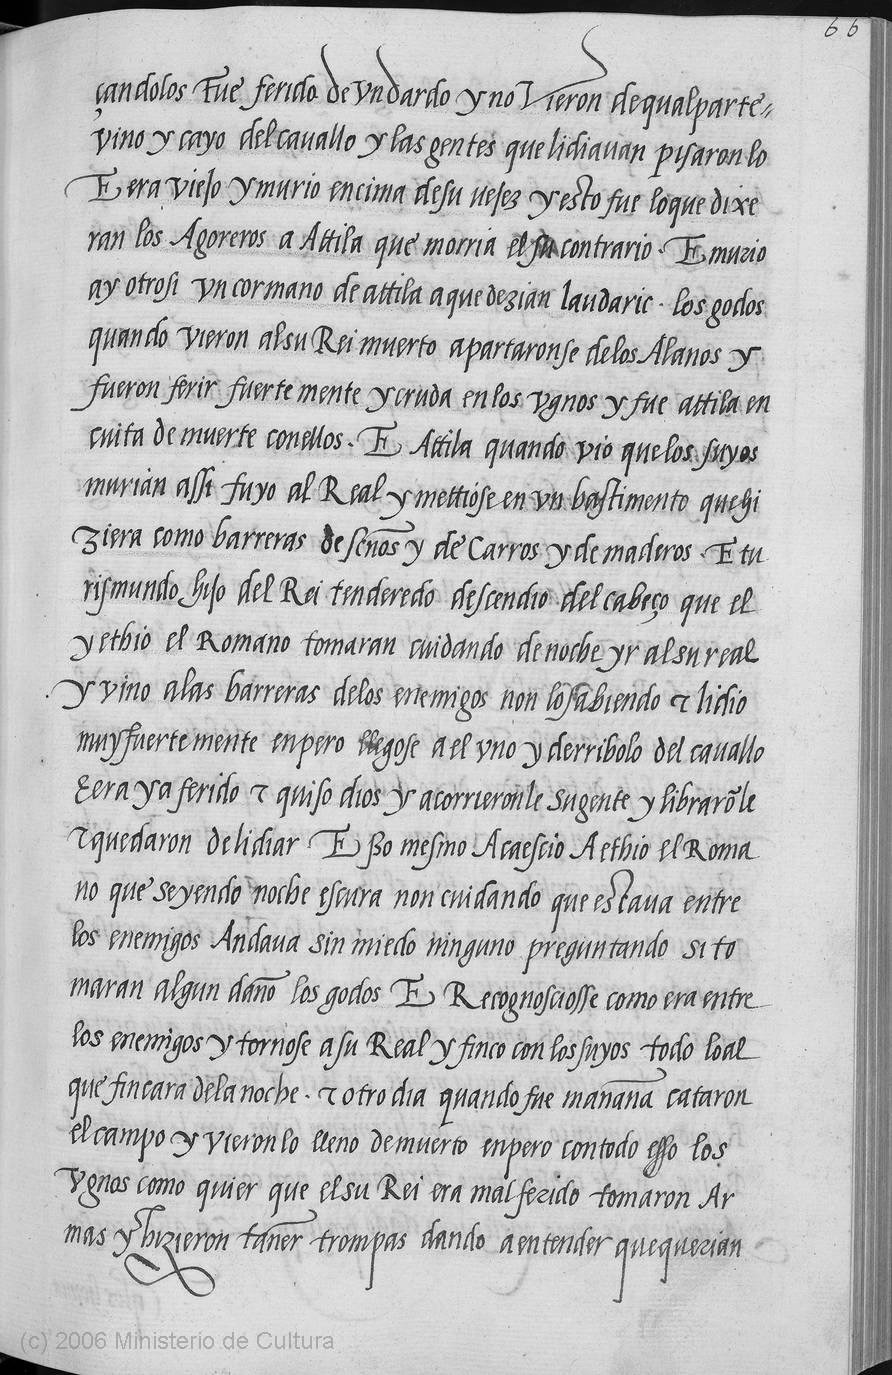 66
çandolos Fue ferido de vn dardo y no Vieron de qual parte
vino y cayo del cauallo y las gentes que lidiauan pisaron lo
E era viejo y murio encima de su vejez y esto fue lo que dixe
ran los Agoreros a Attila que morria el su contrario · E murio
ay otrosi vn cormano de attila a que dezian laudaric · los godos
quando vieron al su Rei muerto apartaronse de los Alanos y
fueron ferir fuerte mente y cruda en los vgnos y fue attila en
cuita de muerte con ellos · E Attila quando vio que los suyos
murian assi fuyo al Real y mettiose en vn bastimento que hi
ziera como barreras de scños y de Carros y de maderos · E tu
rismundo hijo del Rei tenderedo descendio del cabeço que el
y ethio el Romano tomaran cuidando de noche yr al su real
y vino a las barreras delos enemigos non lo sabiendo ⁊ lidio
muy fuerte mente enpero llegose a el vno y derribolo del cauallo
E era ya ferido ⁊ quiso dios y acorrieronle su gente y librarõle
⁊ quedaron de lidiar E sso mesmo Acaescio A ethio el Roma
no que seyendo noche escura non cuidando que estaua entre
los enemigos Andaua sin miedo ninguno preguntando si to
maran algun daño los godos E Recognosciosse como era entre
los enemigos y tornose a su Real y finco con los suyos todo lo al
que fincara dela noche · ⁊ otro dia quando fue mañana cataron
el campo y vieron lo lleno de muerto enpero con todo esso los
vgnos como quier que el su Rei era mal ferido tomaron Ar
mas y hizieron tañer trompas dando a entender que querian
(c) 2006 Ministerio de Cultura